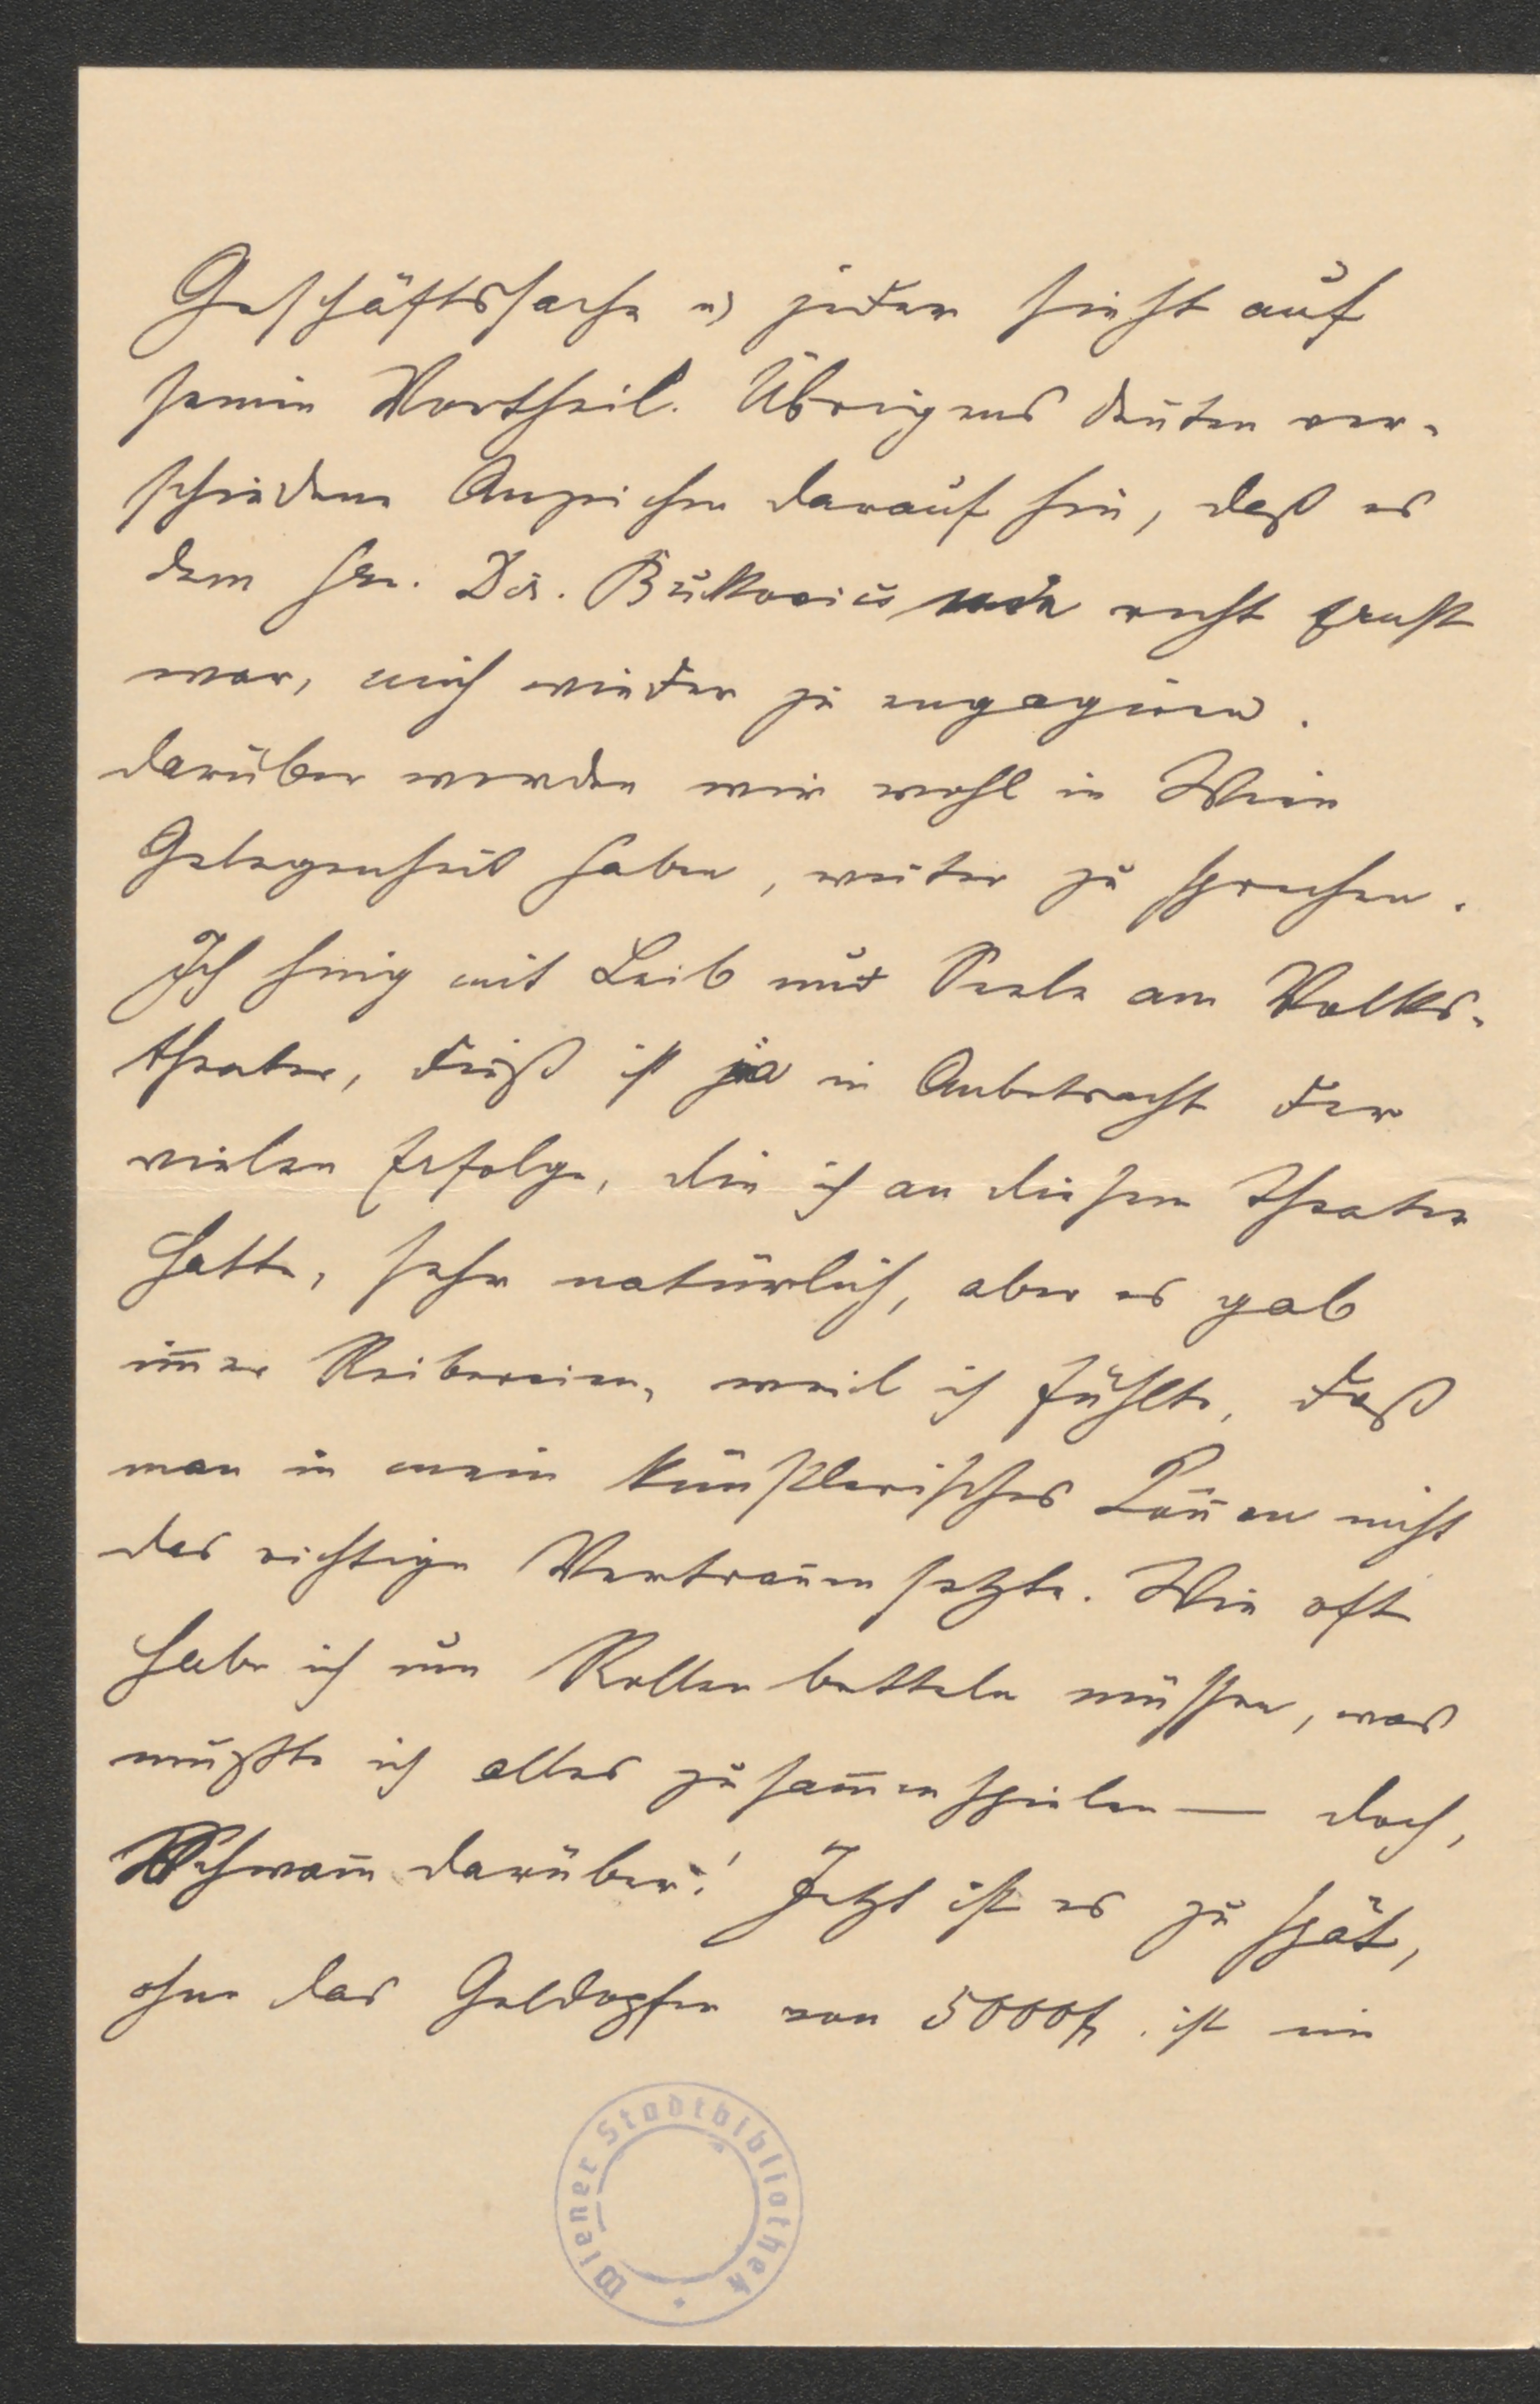 Geschäftssache u jeder sieht auf
seinen Vortheil. Übrigens deuten ver-
schiedene Anzeichen darauf hin, daß es
dem Hrn. Dir. Bukovics nicht Ernst
war, mich wieder zu engagiren.
darüber werden wir wohl in Wien
Gelegenheit haben, weiter zu sprechen.
Ich hing mit Leib und Seele am Volks-
theater, dieß ist ja in Anbetracht der
vielen Erfolge, die ich an diesem Theater
hatte, sehr natürlich, aber es gab
im̄er Reibereien, weil ich fühlte, daß
man in mein künstlerisches Kön̄en nicht
das richtige Vertrauen setzte. Wie oft
habe ich um Rollen betteln müssen, was
mußte ich alles zusam̄enspielen — doch,
Schwam̄ darüber! Jetzt ist es zu spät,
ohne das Geldopfer von 5000 fl. ist ein
Wiener Stadtbibliothek